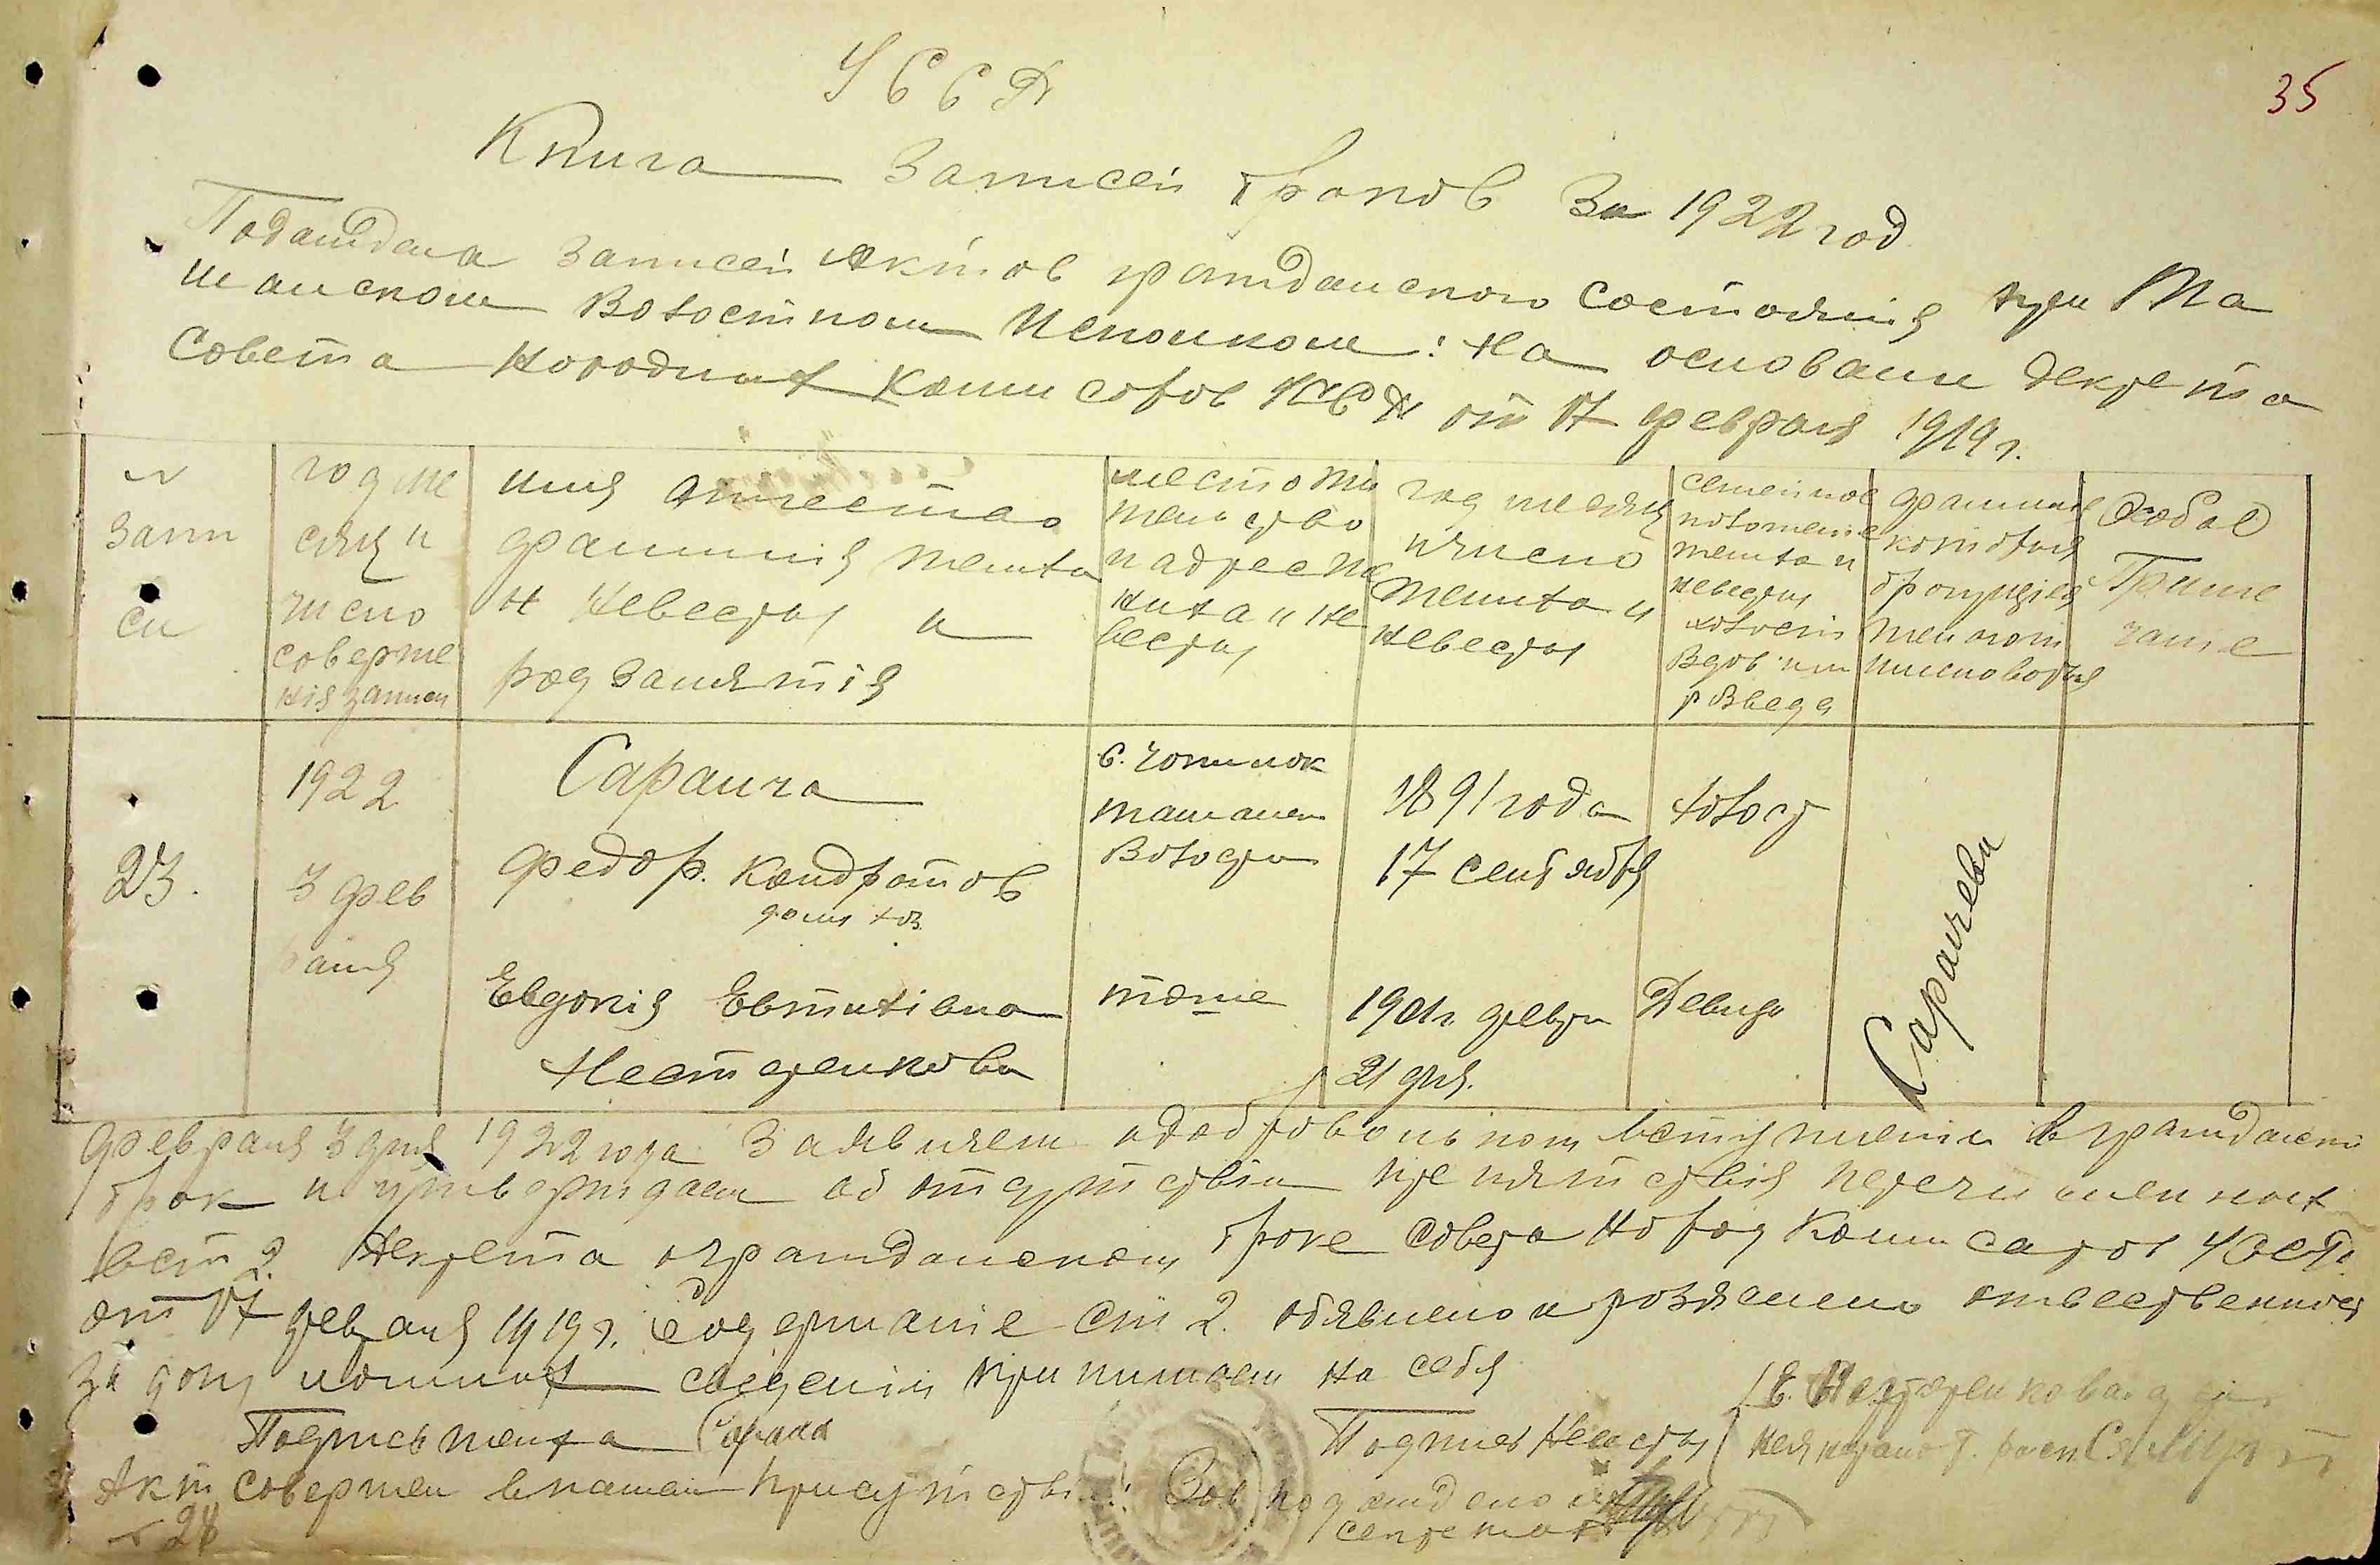 35
УССР
Книга Записей браков За 1922 год
Подотдела Записей Актов гражданского Состояния при Ма
шанском Волостном Исполкоме: На основании Декрета
Совета Народных Комисаров УССР от 17 февраля 1919 г.
№ запи си
год ме сяц и число соверше нія записи
имя отчество фамилія жениха и Невесты и род занятія
место жи тельство и адрес же ниха и не весты
год месяц и число жениха и невесты
семейное положение жениха и невесты холост Вдов или розведен
фамилия которая брачущіеся
Особое Приме чание
23.
1922
3 фев раля
Саранча
Федор. Кондратов
домохоз.
Евдокия Евтихіевна
Нестеренкова
с. Чопилок
Машанск
Волости
тоже
1891 года
17 сентября
1901 г. февр
21 дня.
холост
Девица
Саранчева
февраля 3 дня 1922 года Заявляем о добровольном вступлении в гражданский
брак и утверждаем об отсутствіи препятствія перечисленных
в ст 2. Декрета о гражданском браке Совета Народ Комисаров УССР.
от 17 февраля 1919 г. Содержание Ст 2. объявлено и розяснено ответственность
За дачу ложных сведений принимаем на себя
Подпись жениха Саранча
Подпись Невесты Е. Нестеренкова а за
Акт совершен в нашем присутствіи! Зав подотделом
№ 28
секретарь